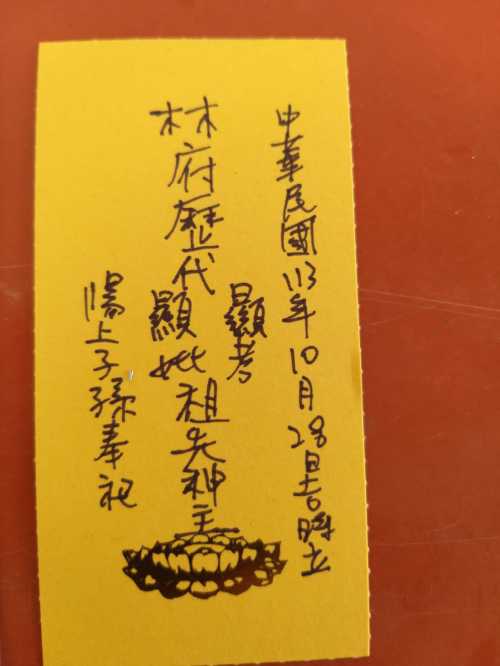 中華民國113年10月28日吉時立
顯考
林府歷代顯妣祖先神主
陽上子孫奉祀